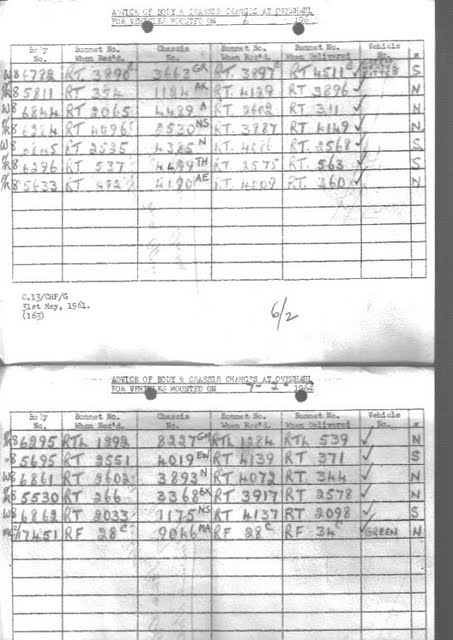 ADVICE OF BODY & CHASSIS CHANGES AT OVERHAUL
FOR VEHICLES MOUNTED ON 6 196
Body No. Bonnet No. When Rec'd. Chassis No. Bonnet No. When Rec'd. Bonnet No. When Delivered Vehicle No.
W8 6722 RT 3890 3663 GK RT. 3897 RT 4511 S
8 5811 RT 374 1124 AK RT 4129 RT 3896 ✓ N
W8 6844 RT 2065 4489 A RT 2602 RT 311 ✓ N
8 6284 RT 4096 2530 NS RT 3887 RT 4149 ✓ N
W8 6845 RT 2535 4385 N RT RT 2568 ✓ S
8 6296 RT 537 4499 TH RT 2575 RT. 563 ✓ S
8 5633 RT 4190 AE RT 4109 RT. 360 ✓ N
C.13/CHP/G
31st May, 1961.
(163)
6/2
ADVICE OF BODY & CHASSIS CHANGES AT OVERHAUL
FOR VEHICLES MOUNTED ON 7-2- 196
Body No. Bonnet No. When Rec'd. Chassis No. Bonnet No. When Rec'd. Bonnet No. When Delivered Vehicle No.
8 6295 RTL 1292 8227 GM RTL 1284 RTL 539 ✓ N
8 5695 RT 2551 4019 EW RT 4139 RT 371 ✓ S
W8 6861 RT 2602 3893 N RT 4072 RT 344 ✓ N
8 5530 RT 266 3368 BX RT 3917 RT 2578 ✓ N
W8 6862 RT 2033 1175 NS RT 4137 RT 2098 ✓ S
17451 RF 28 C 9046 MA RF 28 C RF 34 C ✓ GREEN N